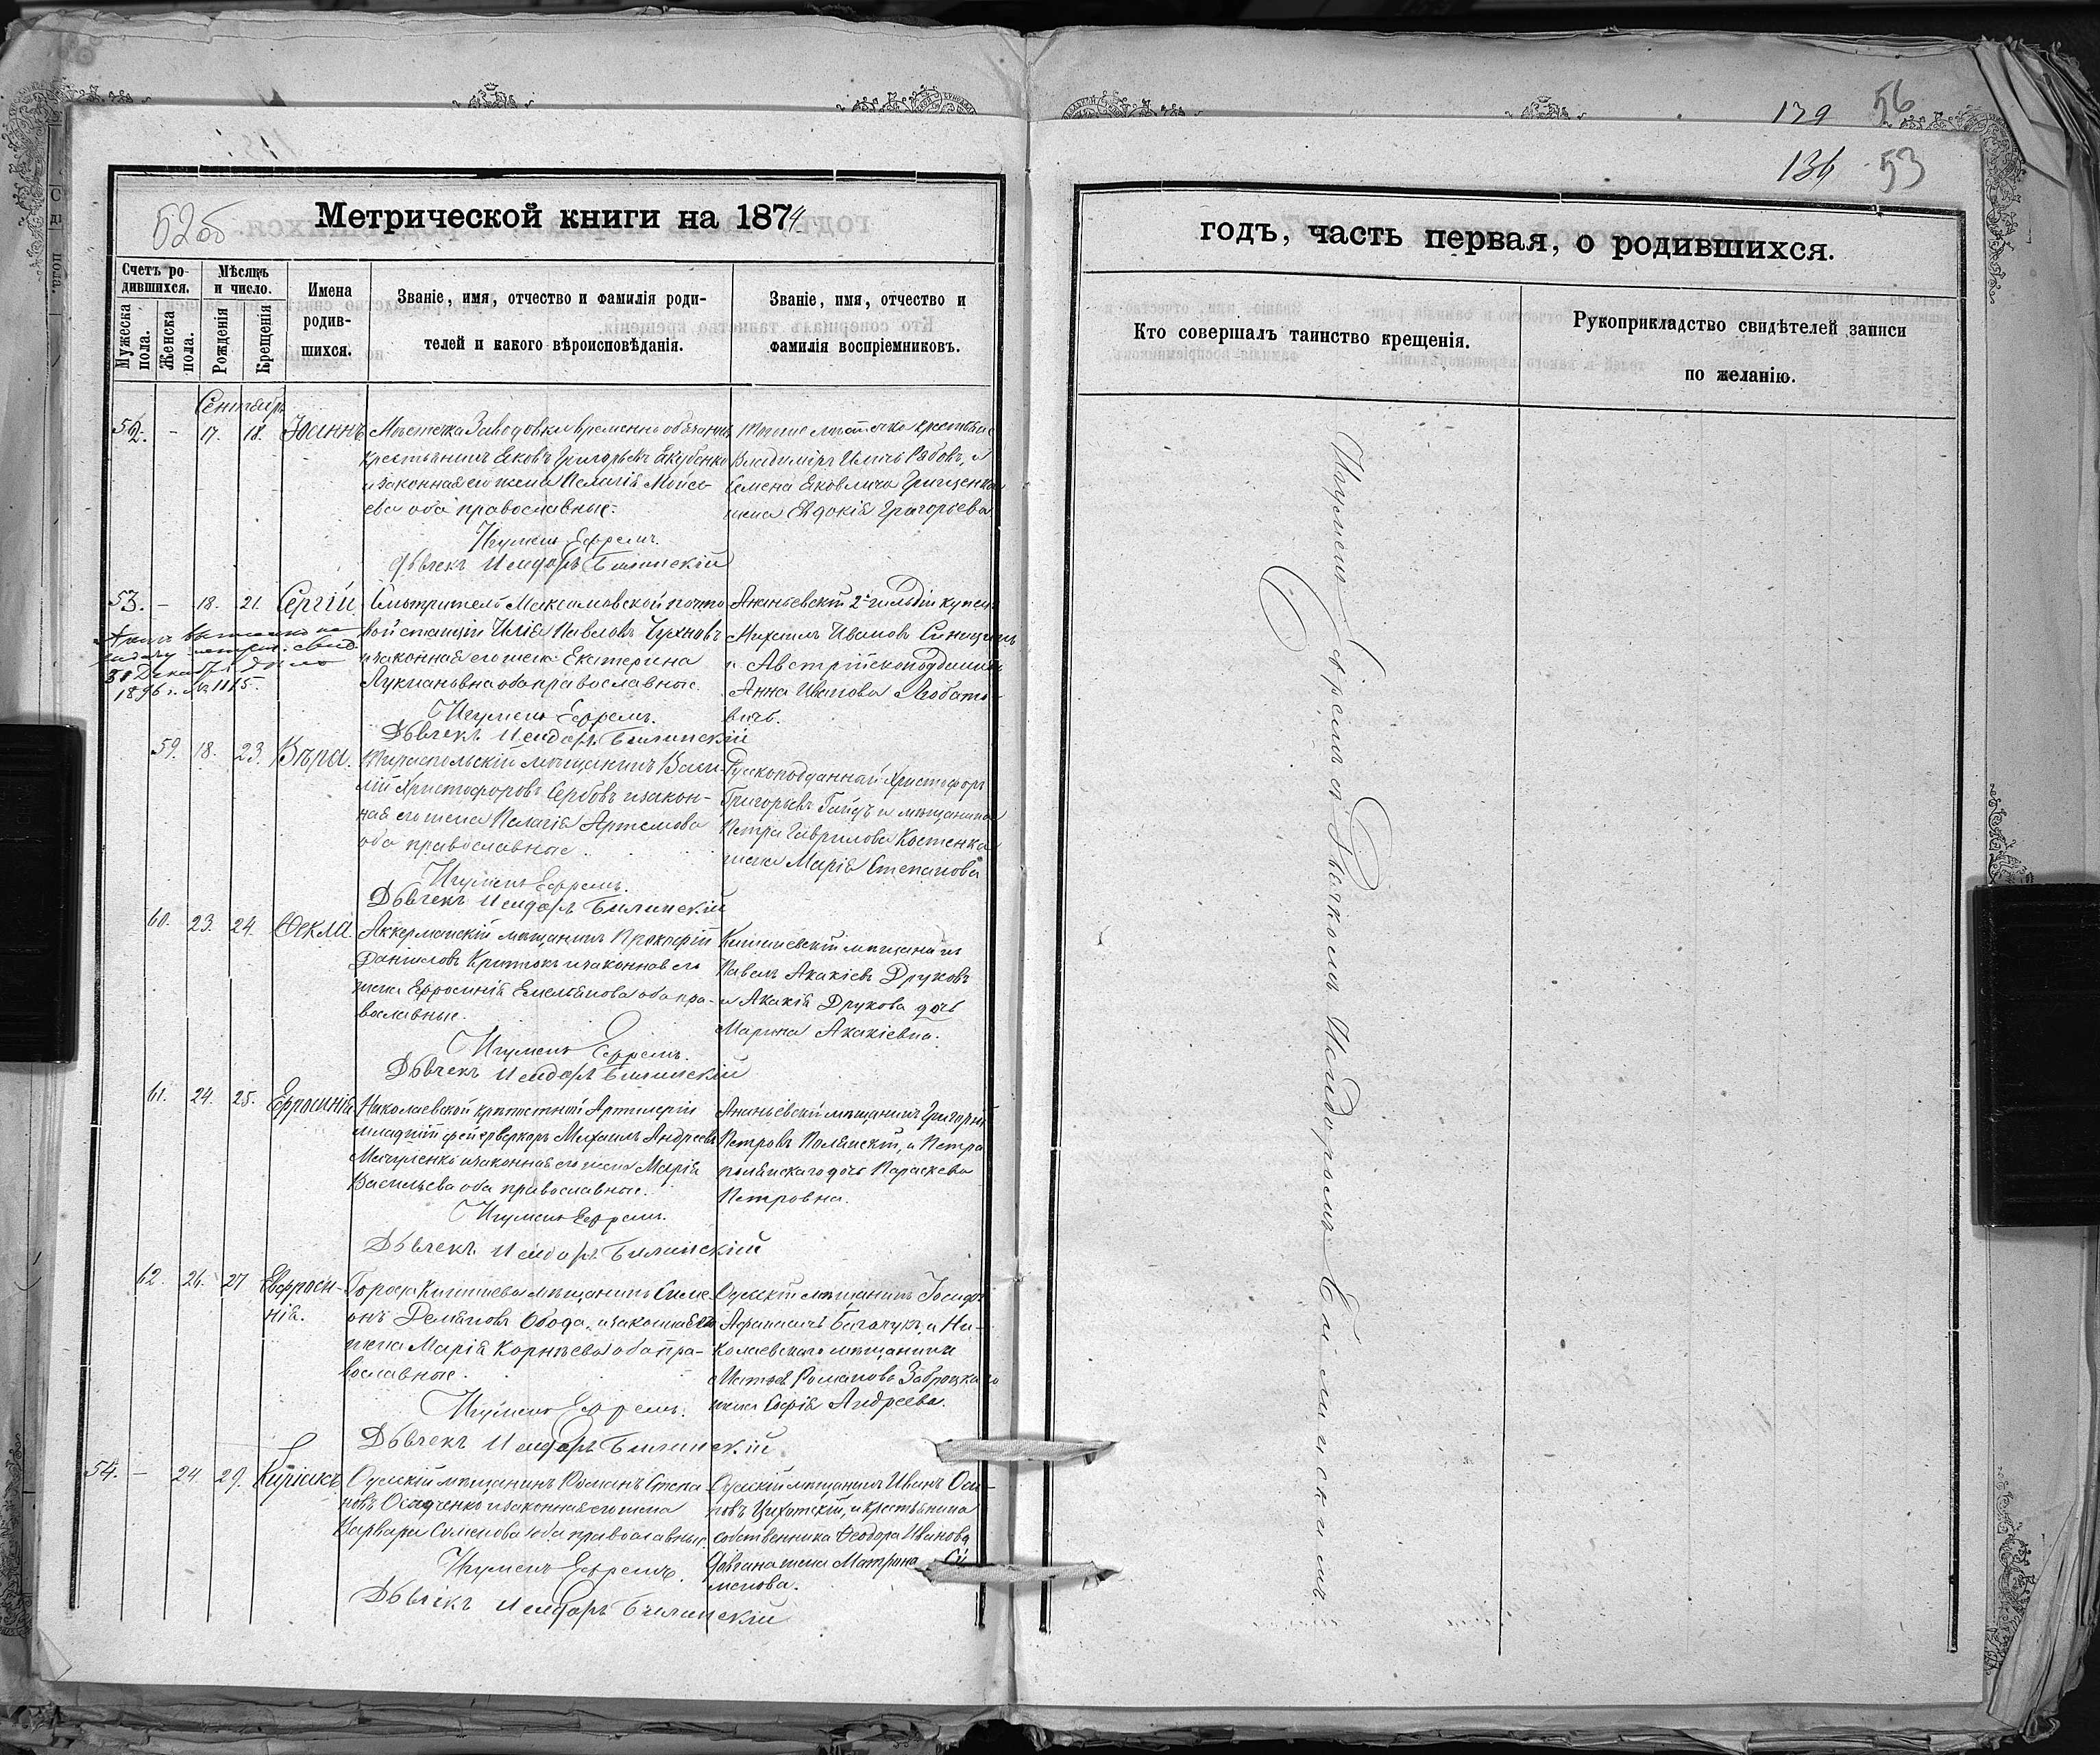 139 56
136 53
52об
Метрической книги на 1874
Счетъ ро-
дившихся.
Мѣсяцъ
и число.
Мужеска
пола.
Женска
пола.
Рожденія
Крещенія
Имена
родив-
шихся.
Званіе, имя, отчество и фамилія роди-
телей и какого вѣроисповѣданія.
Званіе, имя, отчество и
фамилія воспріемниковъ.
Сентябрь
52. - 17. 18. Іоаннъ
Мѣстечка Заводовки временно обязанный
крестьянинъ Яковъ Григорьевъ Якубенко
и законная его жена Пелагія Моисе-
ева оба православные.
крестьяне
Владиміръ Ильинъ Рабовъ, и
Семена Яковлича Грищенка
жена Евдокія Григорьева
Игуменъ Ефремъ.
Дьячекъ Исидоръ Билинскій
53. - 18. 21. Сергій
Смотритель Максимовской почто
вой станціи Илія Павловъ Чухновъ
и законная его жена Екатерина
Лукіановна оба православные.
Ананьевскій 2й гильдіи купецъ
Михаилъ Ивановъ Синицынъ
и Австрійскоподданная
Анна Иванова
вичъ.
31 Декабря
1896 г. № 1115.
Игуменъ Ефремъ.
Дьячекъ Исидоръ Билинскій
59. 18. 23. Вѣра.
Тираспольскій мѣщанинъ Васи-
лій Христофоровъ Сербовъ и закон-
ная его жена Пелагія Артемова
оба православные.
Христофоръ
Григорьевъ и мѣщанина
Петра Гаврилова Костенка
жена Марія Степанова
Игуменъ Ефремъ.
Дьячекъ Исидоръ Билинскій
60. 23. 24. Ѳекла.
Аккерманскій мѣщанинъ Прокофій
Даниловъ и законная его
жена Ефросинія Емельянова оба пра-
вославные.
Кишиневскій мѣщанинъ
Павелъ Акакіевъ Друковъ
и Акакія Друкова дочь
Марина Акакіевна.
Игуменъ Ефремъ.
Дьячекъ Исидоръ Билинскій
61. 24. 25. Ефросинія
Николаевской крѣпостной Артилеріи
младшій фейерверкеръ Михаилъ Андреевъ
и законная его жена Марія
Васильева оба православные.
Ананьевскій мѣщанинъ Григорій
Петровъ Полянскій, и Петра
Полянскаго дочь Параскева
Петровна.
Игуменъ Ефремъ.
Дьячекъ Исидоръ Билинскій
62. 26. 27 Евфроси-
нія.
Города Кишинева мѣщанинъ Симе
онъ Демяновъ Обода, и законная его
жена Марія Корнѣева оба пра-
вославные.
Одесскій мѣщанинъ Іосифъ
и Ни-
колаевскаго мѣщанина
Романова Заброцкаго
жена Софія Андреева.
Игуменъ Ефремъ.
Дьячекъ Исидоръ Билинскій
54. - 24 29. Киріакъ
Одесскій мѣщанинъ Романъ Степа
новъ Осадченко и законная его жена
Варвара Семенова оба православные.
Одесскій мѣщанинъ Иванъ Оси-
повъ и крестьянина
собственника Ѳеодора Иванова
жена Матрона Си
менова.
Игуменъ Ефремъ.
Дьячекъ Исидоръ Билинскій
годъ, часть первая, о родившихся.
Кто совершалъ таинство крещенія.
Рукоприкладство свидѣтелей записи
по желанію.
Игуменъ Ефремъ съ Дьячкомъ Исидоромъ Билинскимъ.